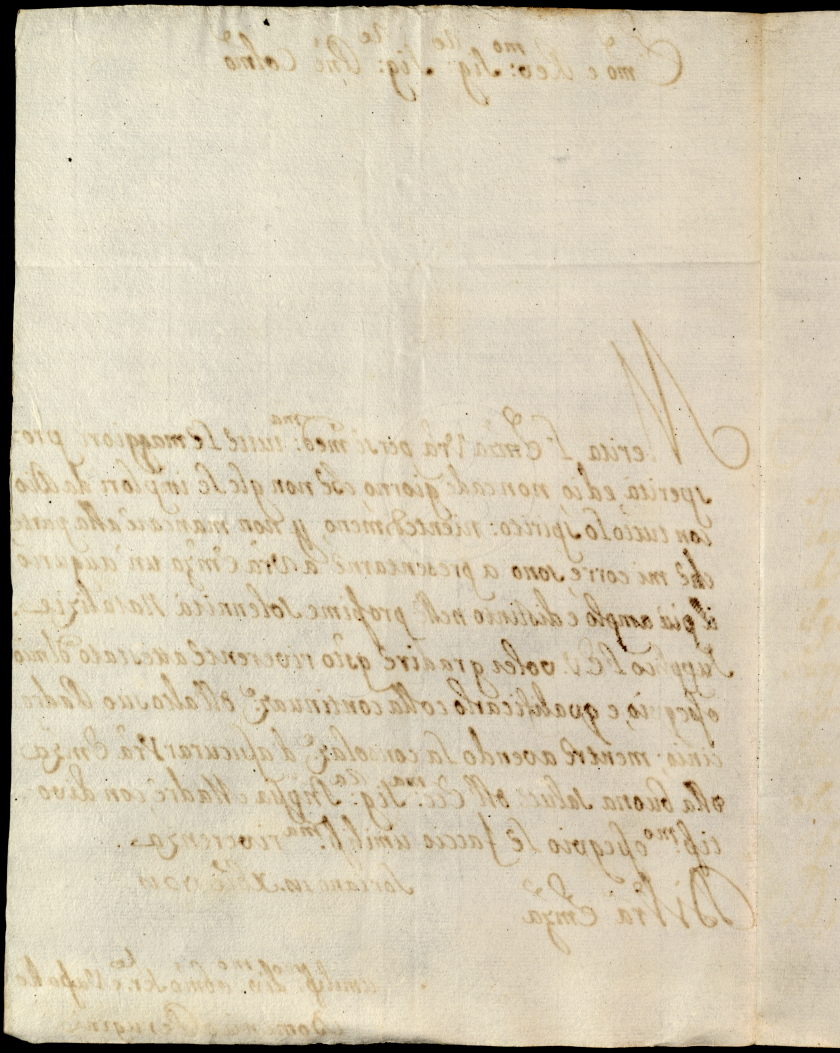 Emo e Rev:mo Sig:re Sig:re Pne Colmo
Merita l'Emza Vra per se med:ma tutte le maggiori pro-
sperità, ed io non cade giorno che non gle le implori da Dio
con tutto lo spirito: nientedimeno, p non mancare alla parte
che mi corre sono a presentarne a Vra Emza un augurio
il più ample e distinto nelle prossime solennità Natalizie
Supplico l'E.V. voler gradire qsto riverente attestato del mio
ossequio, e qualificarlo colla continuaze dell'alto suo Padro
cinio; mentre avendo la consolaze d'assicurar Vra Emza
della buona salute dell'Ecc:ma Sig:ra Madre con divo-
tissmo ossequio le faccio umiliss:ma riverenza
Soriano
Di Vra Emza
umiliss:mo div:mo obmo ser:re e Vassallo
Domenico